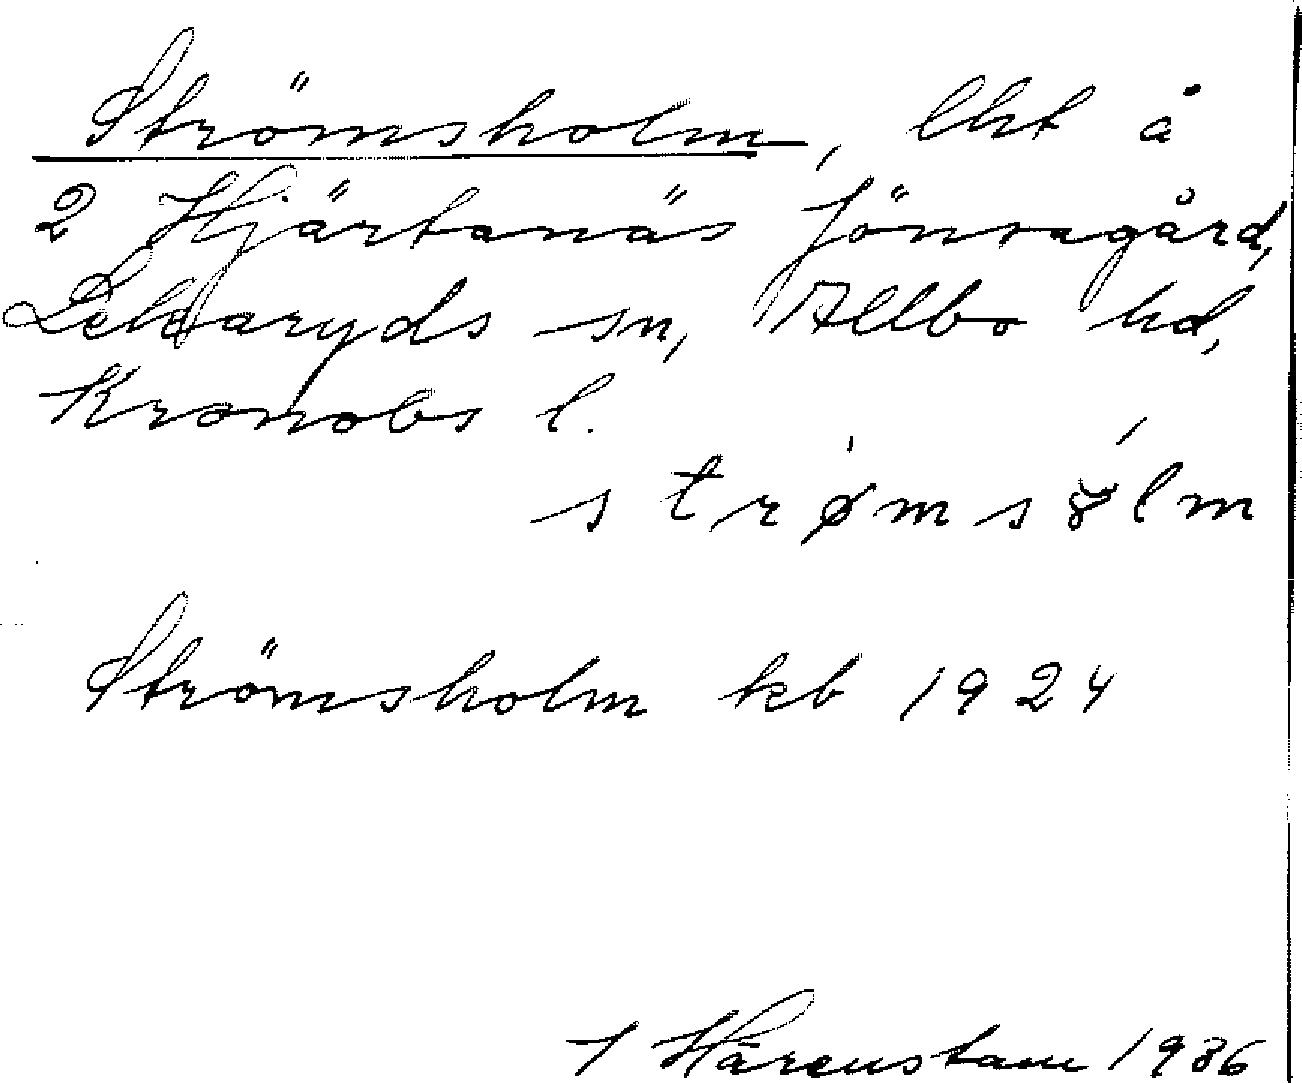 Strömsholm, lht å
2 Hjärtanäs Jönsagård,
Lekaryds sn, Allbo hd,
Kronobs l.
strø̀msålm
Strömsholm kb 1924
I Härenstam 1936